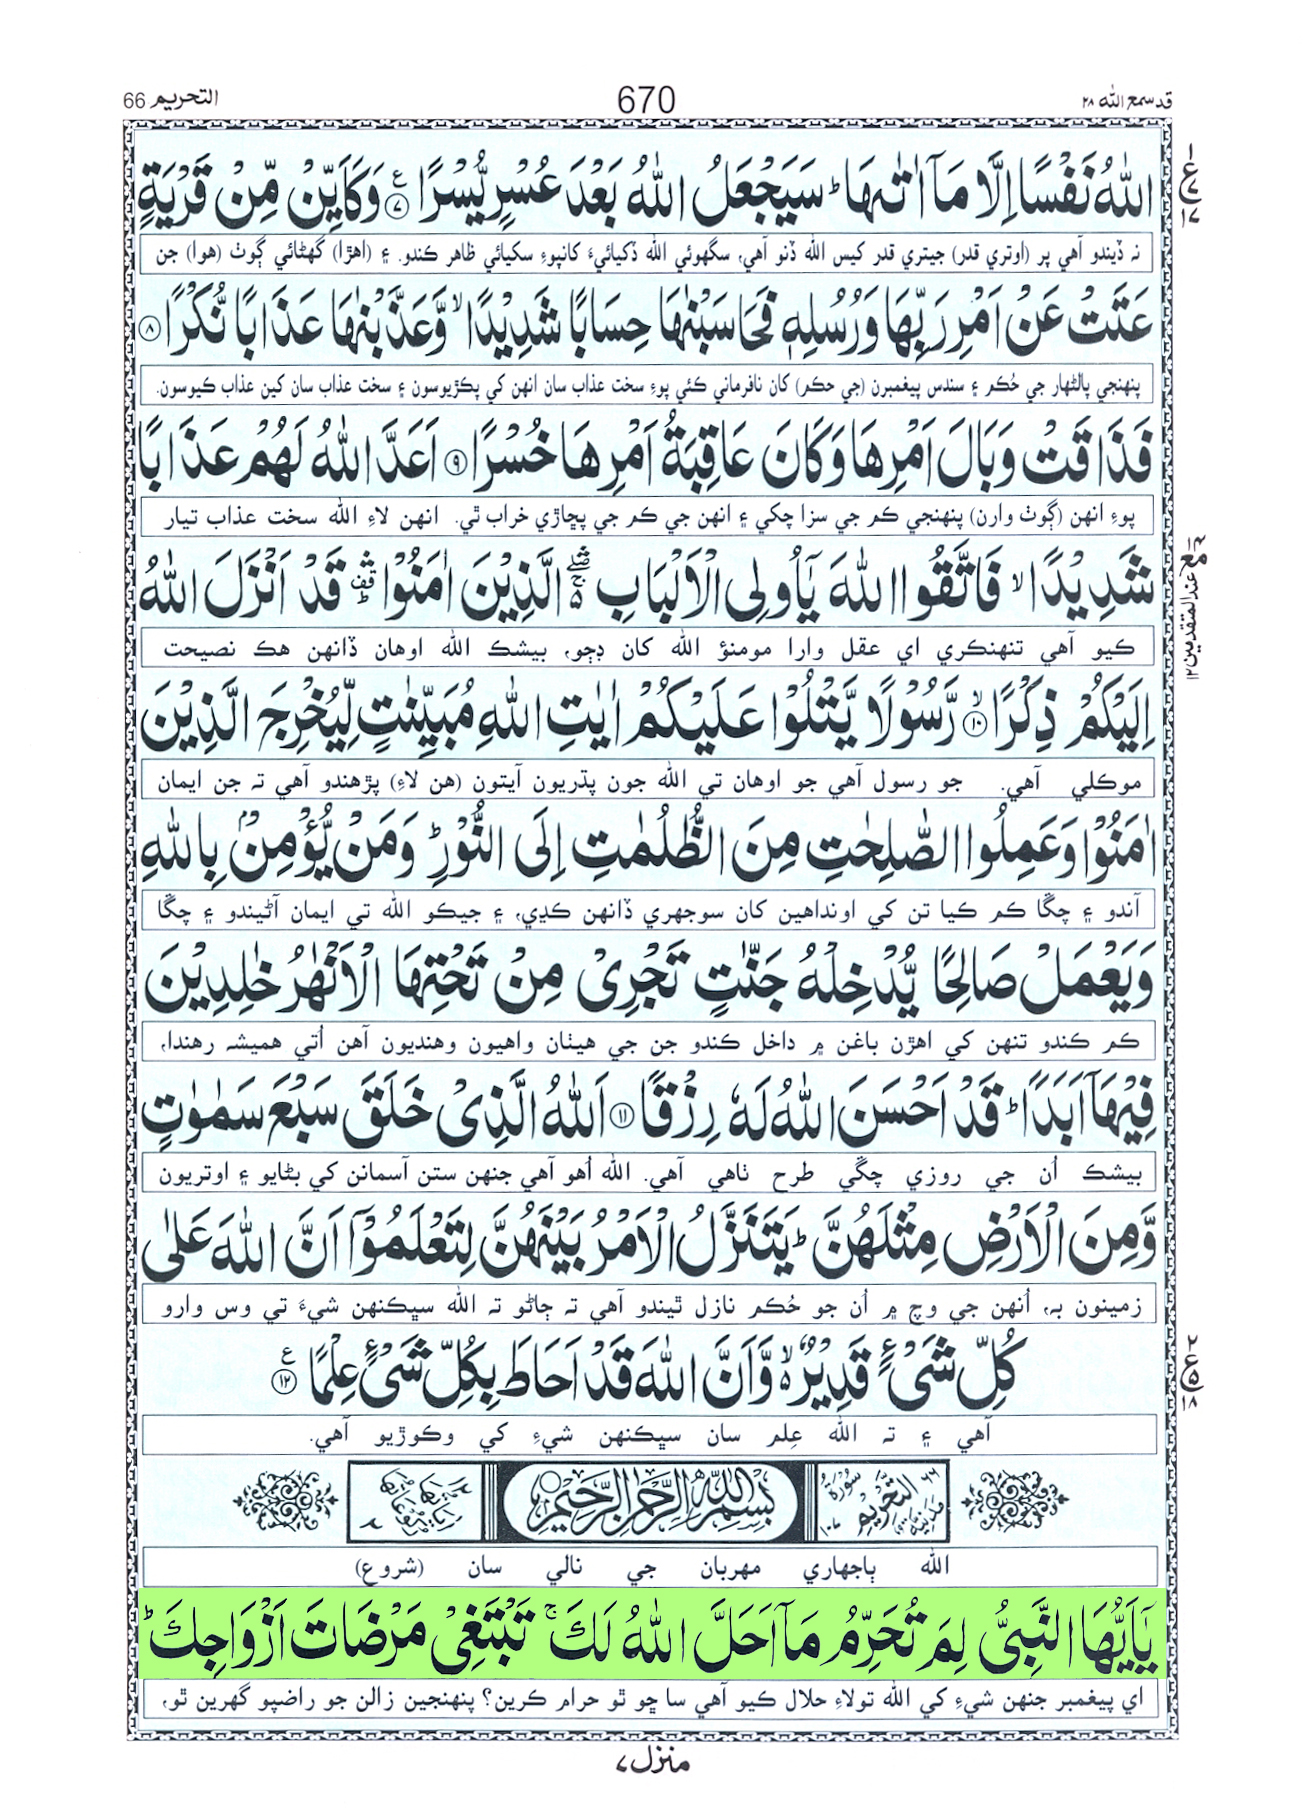 التحريم 66
670
قد سمع الله ٢٨
اللّٰهُ نَفْسًا اِلَّا مَاۤ اٰتٰىهَا ؕ سَيَجْعَلُ اللّٰهُ بَعْدَ عُسْرٍ يُّسْرًا ﴿٧﴾ ع وَكَاَيِّنْ مِّنْ قَرْيَةٍ
نہ ڏيندو آهي پر (اوتري قدر) جيتري قدر کيس الله ڏنو آهي، سگهوئي الله ڏکيائيءَ کانپوءِ سکيائي ظاهر ڪندو. ۽ (اهڙا) گهڻائي ڳوٺ (هوا) جن
عَتَتْ عَنْ اَمْرِ رَبِّهَا وَرُسُلِهٖ فَحَاسَبْنٰهَا حِسَابًا شَدِيْدًا ۙ وَّعَذَّبْنٰهَا عَذَابًا نُّكْرًا ﴿٨﴾
پنهنجي پالڻهار جي حُڪم ۽ سندس پيغمبرن (جي حڪم) کان نافرماني ڪئي پوءِ سخت عذاب سان انهن کي پڪڙيوسون ۽ سخت عذاب سان کين عذاب ڪيوسون.
فَذَاقَتْ وَبَالَ اَمْرِهَا وَكَانَ عَاقِبَةُ اَمْرِهَا خُسْرًا ﴿٩﴾ اَعَدَّ اللّٰهُ لَهُمْ عَذَابًا
پوءِ انهن (ڳوٺ وارن) پنهنجي ڪم جي سزا چکي ۽ انهن جي ڪم جي پڇاڙي خراب ٿي. انهن لاءِ الله سخت عذاب تيار
شَدِيْدًا ۙ فَاتَّقُوا اللّٰهَ يٰۤاُولِى الْاَلْبَابِ ۛۚ الَّذِيْنَ اٰمَنُوْا ۛ قَدْ اَنْزَلَ اللّٰهُ
ڪيو آهي تنهنڪري اي عقل وارا مومنؤ الله کان ڊڄو، بيشڪ الله اوهان ڏانهن هڪ نصيحت
اِلَيْكُمْ ذِكْرًا ﴿١٠﴾ۙ رَّسُوْلًا يَّتْلُوْا عَلَيْكُمْ اٰيٰتِ اللّٰهِ مُبَيِّنٰتٍ لِّيُخْرِجَ الَّذِيْنَ
موڪلي آهي. جو رسول آهي جو اوهان تي الله جون پڌريون آيتون (هن لاءِ) پڙهندو آهي تہ جن ايمان
اٰمَنُوْا وَعَمِلُوا الصّٰلِحٰتِ مِنَ الظُّلُمٰتِ اِلَى النُّوْرِ ؕ وَمَنْ يُّؤْمِنْۢ بِاللّٰهِ
آندو ۽ چڱا ڪم ڪيا تن کي اونداهين کان سوجهري ڏانهن ڪڍي، ۽ جيڪو الله تي ايمان آڻيندو ۽ چڱا
وَيَعْمَلْ صَالِحًا يُّدْخِلْهُ جَنّٰتٍ تَجْرِىْ مِنْ تَحْتِهَا الْاَنْهٰرُ خٰلِدِيْنَ
ڪم ڪندو تنهن کي اهڙن باغن ۾ داخل ڪندو جن جي هيٺان واهيون وهنديون آهن اُتي هميشہ رهندا،
فِيْهَاۤ اَبَدًا ؕ قَدْ اَحْسَنَ اللّٰهُ لَهٗ رِزْقًا ﴿١١﴾ اَللّٰهُ الَّذِىْ خَلَقَ سَبْعَ سَمٰوٰتٍ
بيشڪ اُن جي روزي چڱي طرح ٺاهي آهي. الله اُهو آهي جنهن ستن آسمانن کي بڻايو ۽ اوتريون
وَّمِنَ الْاَرْضِ مِثْلَهُنَّ ؕ يَتَنَزَّلُ الْاَمْرُ بَيْنَهُنَّ لِتَعْلَمُوْۤا اَنَّ اللّٰهَ عَلٰى
زمينون بہ، اُنهن جي وچ ۾ اُن جو حُڪم نازل ٿيندو آهي تہ ڄاڻو تہ الله سڀڪنهن شيءَ تي وس وارو
كُلِّ شَىْءٍ قَدِيْرٌ ۙ وَّاَنَّ اللّٰهَ قَدْ اَحَاطَ بِكُلِّ شَىْءٍ عِلْمًا ﴿١٢﴾ ع
آهي ۽ تہ الله عِلم سان سڀڪنهن شيءِ کي وڪوڙيو آهي.
سُوْرَةُ التَّحْرِيْمِ مَدَنِيَّةٌ
بِسْمِ اللّٰهِ الرَّحْمٰنِ الرَّحِيْمِ
الله ٻاجهاري مهربان جي نالي سان (شروع)
يٰۤاَيُّهَا النَّبِىُّ لِمَ تُحَرِّمُ مَاۤ اَحَلَّ اللّٰهُ لَكَ ۚ تَبْتَغِىْ مَرْضَاتَ اَزْوَاجِكَ ؕ
اي پيغمبر جنهن شيءِ کي الله تولاءِ حلال ڪيو آهي سا ڇو ٿو حرام ڪرين؟ پنهنجين زالن جو راضپو گهرين ٿو،
منزل ٧